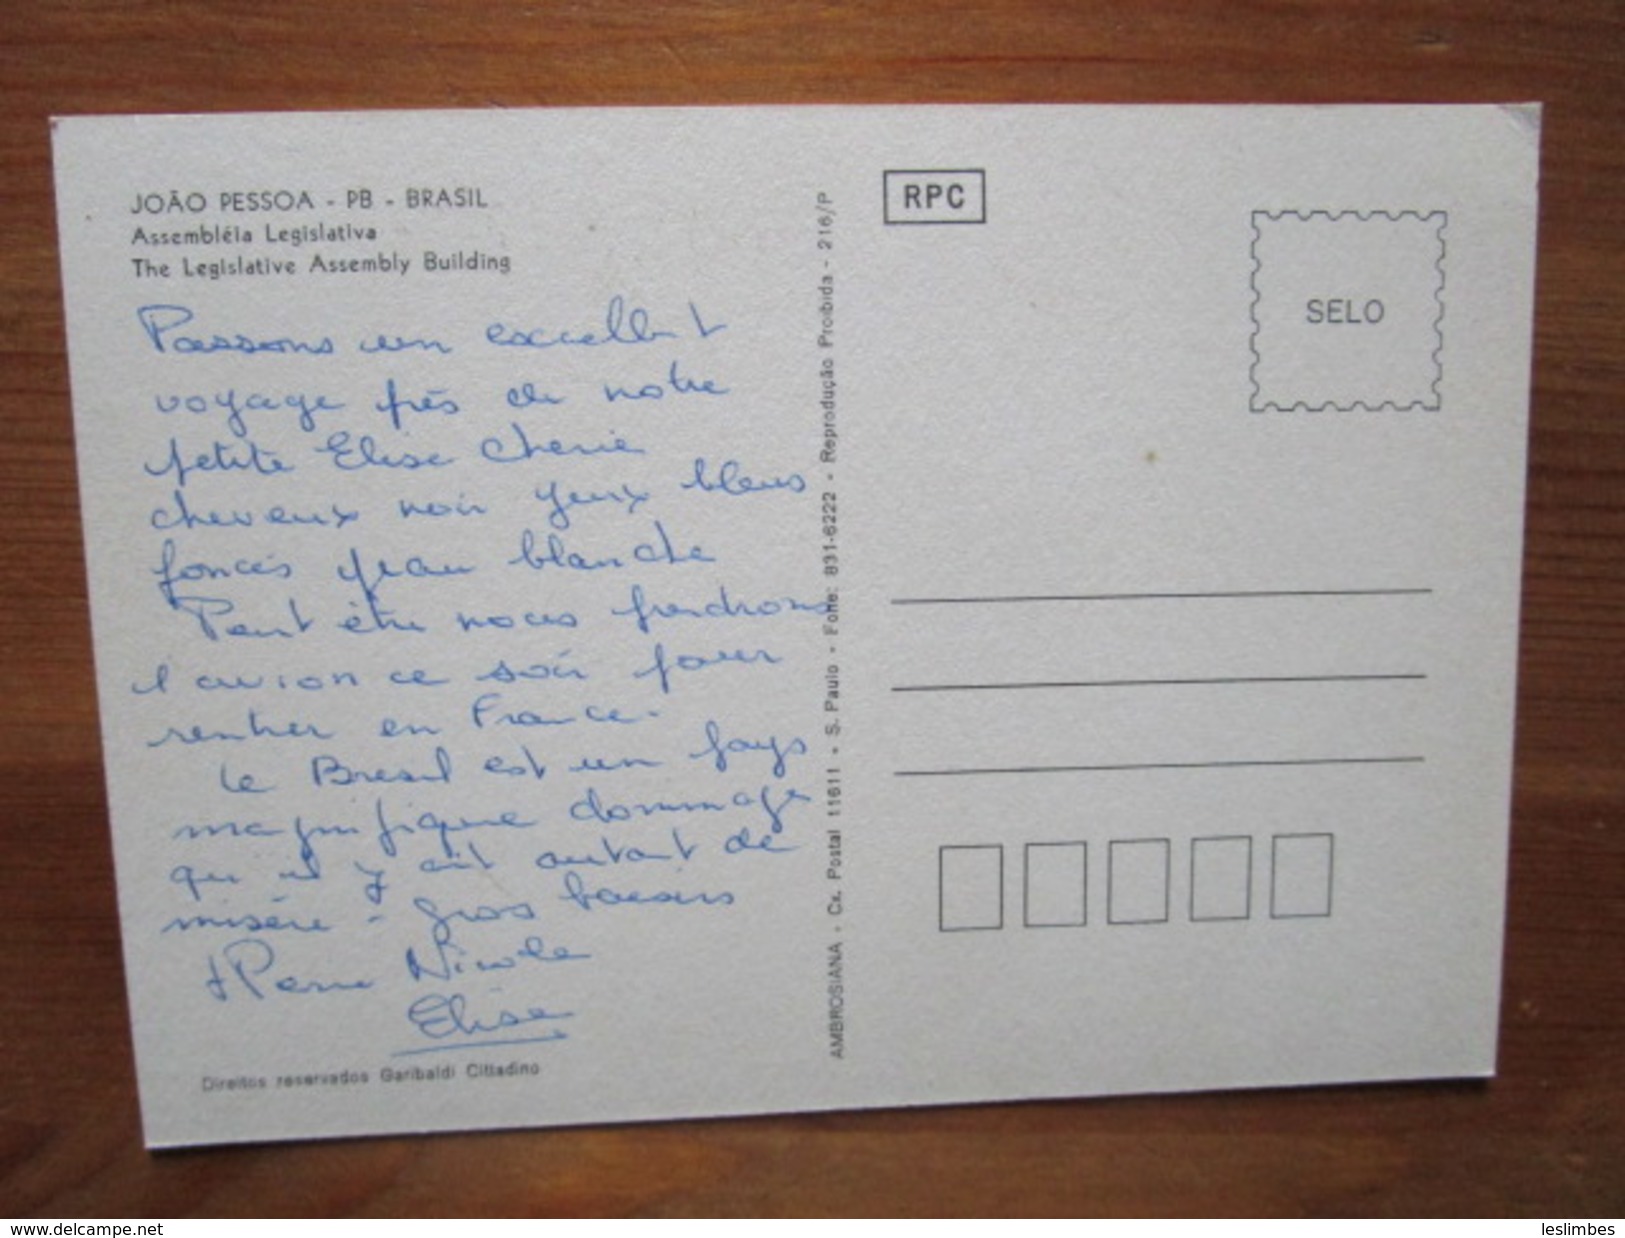 JOÃO PESSOA - PB - BRASIL
Assembléia Legislativa
The Legislative Assembly Building
Passons un excellent
voyage près de notre
petite Elise Cherie
cheveux noir yeux bleus
foncés peau blanche
Peut être nous prendrons
l'avion ce soir pour
rentrer en France.
Le Bresil est un pays
magnifique dommage
qu il y ait autant de
misère - gros baisers
Pierre Nicole
Elise
Direitos reservados Garibaldi Cittadino
AMBROSIANA - Cx. Postal 11611 - S. Paulo - Fone: 831-6222 - Reprodução Proibida - 216/P
RPC
SELO
www.delcampe.net
leslimbes